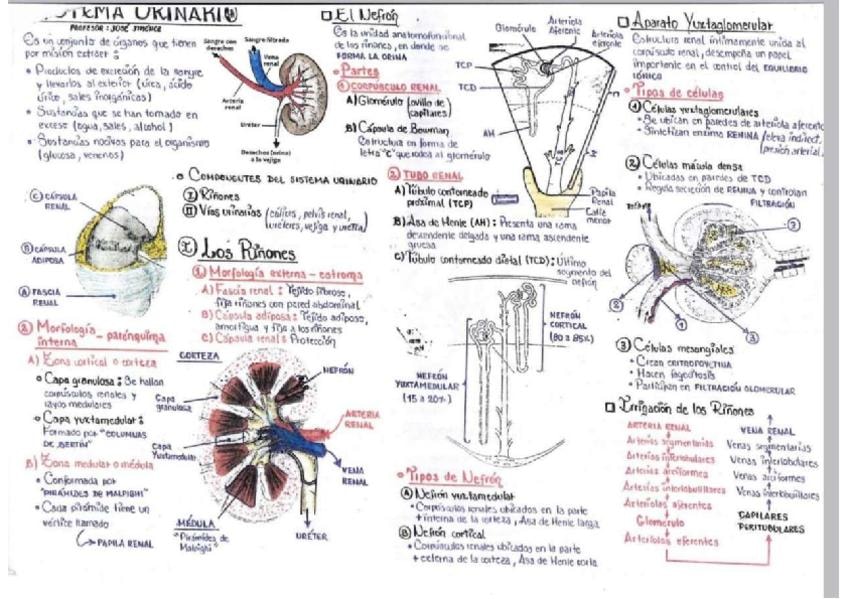 SISTEMA URINARIO
PROFESOR: JOSÉ
Es un conjunto de órganos que tienen
por misión extraer:
• Productos de excreción de la sangre
y llevarlos al exterior (úrea, ácido
úrico, sales inorgánicas)
• Sustancias que se han tomado en
exceso (agua, sales, alcohol)
• Sustancias nocivas para el organismo
(glucosa, venenos)
Sangre con
desechos
Sangre filtrada
Vena
renal
Arteria
renal
Uréter
Desechos (orina)
a la vejiga
COMPONENTES DEL SISTEMA URINARIO
I) Riñones
II) Vías urinarias (cálices, pelvis renal,
uréteres, vejiga y uretra)
C) CÁPSULA
RENAL
B) CÁPSULA
ADIPOSA
A) FASCIA
RENAL
I) Los Riñones
1) Morfología externa - estroma
A) Fascia renal: Tejido fibroso,
fija riñones con pared abdominal
B) Cápsula adiposa: Tejido adiposo,
amortigua y fija a los riñones
C) Cápsula renal: Protección
2) Morfología - parénquima
interna
A) Zona cortical o corteza
• Capa granulosa: Se hallan
corpúsculos renales y
rayos medulares
• Capa yuxtamedular:
Formado por "COLUMNAS
DE BERTÍN"
B) Zona medular o médula
• Conformada por
"PIRÁMIDES DE MALPIGHI"
• Cada pirámide tiene un
vértice llamado
PAPILA RENAL
CORTEZA
Capa
granulosa
Capa
Yuxtamedular
MÉDULA
"Pirámides de
Malpighi"
NEFRÓN
ARTERIA
RENAL
VENA
RENAL
URÉTER
El Nefrón
Es la unidad anatomofuncional
de los riñones, en donde se
FORMA LA ORINA
• Partes
1) CORPÚSCULO RENAL
A) Glomérulo (ovillo de
capilares)
B) Cápsula de Bowman
Estructura en forma de
letra "C" que rodea al glomérulo
2) TUBO RENAL
A) Túbulo contorneado
proximal (TCP)
B) Asa de Henle (AH): Presenta una rama
descendente delgada y una rama ascendente
gruesa
C) Túbulo contorneado distal (TCD): Último
segmento del
nefrón
Glomérulo
Arteriola
Aferente
Arteriola
eferente
TCP
TCD
AH
Papila
Renal
Cáliz
menor
NEFRÓN
CORTICAL
(80 a 85%)
NEFRÓN
YUXTAMEDULAR
(15 a 20%)
• Tipos de Nefrón
A) Nefrón yuxtamedular
• Corpúsculos renales ubicados en la parte
+ interna de la corteza, Asa de Henle larga
B) Nefrón cortical
• Corpúsculos renales ubicados en la parte
+ externa de la corteza, Asa de Henle corta
Aparato Yuxtaglomerular
Estructura renal íntimamente unida al
corpúsculo renal, desempeña un papel
importante en el control del EQUILIBRIO
IÓNICO
• Tipos de células
1) Células yuxtaglomerulares
• Se ubican en paredes de arteriola aferente
• Sintetizan enzima RENINA (eleva indirect.
presión arterial)
2) Células mácula densa
• Ubicadas en paredes de TCD
• Regula secreción de RENINA y controlan
FILTRACIÓN
2
2
1
3
3) Células mesangiales
• Crean ERITROPOYETINA
• Hacen fagocitosis
• Participan en FILTRACIÓN GLOMERULAR
Irrigación de los Riñones
ARTERIA RENAL
Arterias segmentarias
Arterias interlobulares
Arterias arciformes
Arterias interlobulillares
Arteriolas aferentes
Glomérulo
Arteriolas eferentes
VENA RENAL
Venas segmentarias
Venas interlobulares
Venas arciformes
Venas interlobulillares
CAPILARES
PERITUBULARES